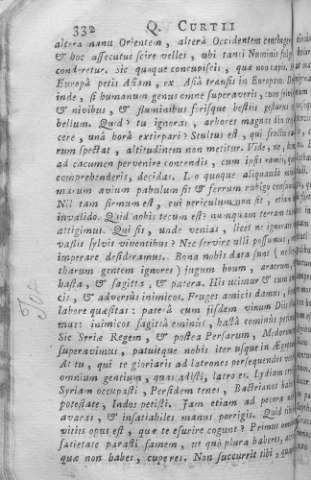 332 Q. CURTII
altera manu Orientem, alterâ Occidentem contingeres
& hoc assecutus scire velles, ubi tanti Numinis fulgor
conderetur. Sic quoque concupiscis, quæ non capis. Ab
Europâ petis Asiam, ex Asiâ transis in Europam. De-
inde, si humanum genus omne superaveris, cum
& nivibus, & fluminibus ferisque bestiis gesturus
bellum. Quid? tu ignoras, arbores magnas diu
cere, unâ horâ extirpari? Stultus est, qui fructus
rum spectat, altitudinem non metitur. Vide, ne,
ad cacumen pervenire contendis, cum ipsis ramis,
comprehenderis, decidas. Leo quoque aliquando
marum avium pabulum fit & ferrum rubigo
Nil tam firmum est, cui periculum non sit,
invalido. Quid nobis tecum est? nunquam terram
attigimus. Qui sis, unde venias, licet ne ignorare
vastis sylvis viventibus? Nec servire ulli possumus,
imperare desideramus. Bona nobis data sunt (ne
tharum gentem ignores) jugum boum, aratrum,
hasta, & sagitta, & patera. His utimur & cum
cis, & adversùs inimicos. Fruges amicis damus,
labore quæsitas: paterâ cum iisdem vinum Diis
mus: inimicos sagittâ eminùs, hastâ cominùs
Sic Syriæ Regem, & posteà Persarum, Medorumque
superavimus, patuitque nobis iter usque in Ægyptum
At tu, qui te gloriaris ad latrones persequendos
omnium gentium, quas adisti, latro es. Lydiam
Syriam occupasti, Persidem tenes, Bactrianos habes
potestate, Indos petisti. Jam etiam ad pecora
avaras & insatiabiles manus porrigis. Quid tibi
vitiis opus est, quæ te esurire cogunt? Primus omnium
satietate parasti famem, ut quò plura haberes,
quæ non habes, cuperes. Non succurrit tibi,